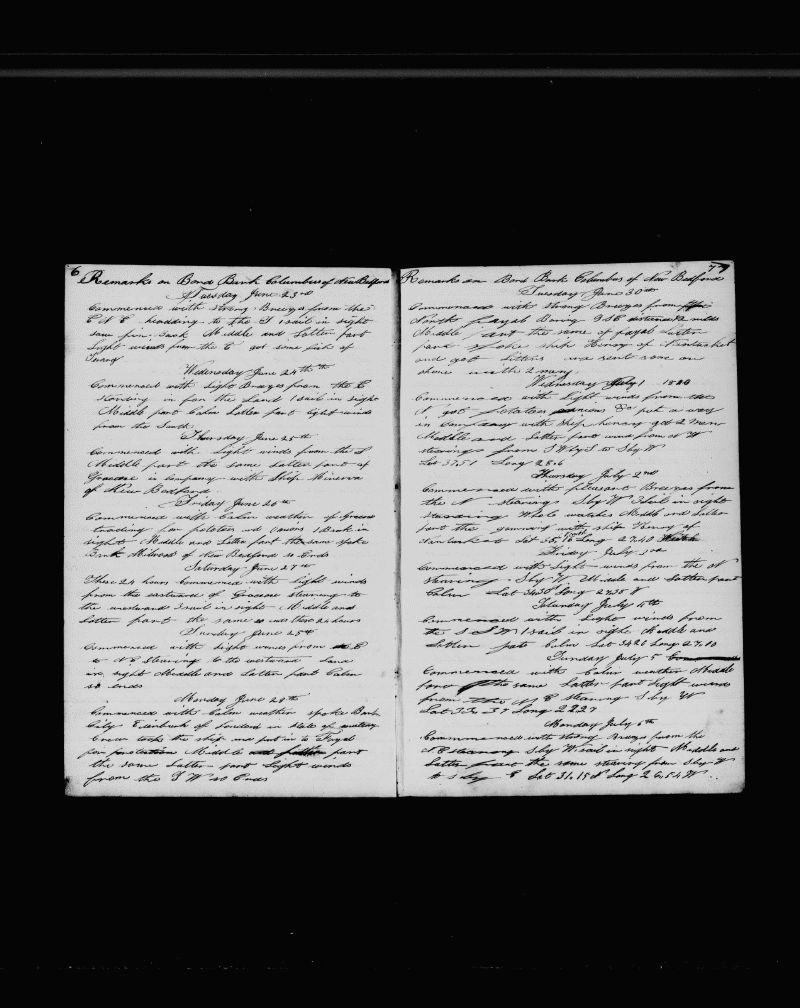 6 Remarks on Bord Bark Columbus of New Bedford
Tuesday June 23rd
Commenced with strong Breezes from the
E N E headding to the S 1 sail in sight
saw fin back Middle and Latter part
Light winds from the E got some fish of
Wednesday June 24th
Commenced with Light Breezes from the E
standing in for the Land 1 sail in sight
Middle part Calm Latter part light winds
from the South
Thursday June 25th
Commenced with Light winds from the S
Middle part the same Latter part of
Graciose in Company with Ship Minerva
of New Bedford
Friday June 26th
Commenced with Calm weather of Graciose
trading for potatoes and onions 1 Bark in
sight Middle and Latter part the same spoke
Bark Mildwood of New Bedford so Ends
Saturday June 27th
These 24 hours Commenced with Light winds
from the eastward of Graciose stearing to
the westward 3 sail in sight Middle and
Latter part the same so ends these 24 hours
Sunday June 28th
Commenced with Light winds from E
to N E Stearing to the westward Land
in sight Middle and Latter part Calm
so ends
Monday June 29th
Commenced with Calm weather spoke Bark
City Edinburk of London in state of mutiny
Crew took the ship and put in to Fayal
for Middle part
the same Latter part Light winds
from the S W so Ends
77
Remarks on Bord Bark Columbus of New Bedford
Tuesday June 30th
Commenced with strong Breezes from
North Fayal Baring S S E distance 12 miles
Middle part the same of Fayal Latter
part spoke ship Henry of Nantucket
and got Letters we sent some on
shore with 2 many
Wednesday July 1
Commenced with Light winds from
N got potatoes onions &c put a way
in Company with Ship Henary got 2 men
Middle and Latter part wind from N W
stearing from S W by S to S by W
Lat 37.51 Long 28.6
Thursday July 2nd
Commenced with pleasant Breezes from
the N stearing S by W 1 sail in sight
Stearing Whole watches Middle and Latter
part the same with ship Henry of
Nantucket Lat 35,16 North Long 27.40
Friday July 3rd
Commenced with Light winds from the N
stearing S by W Middle and Latter part
Calm Lat 34.30 Long 27.35 W
Saturday July 4th
Commenced with Light winds from
the S S W 1 sail in sight Middle and
Latter part Calm Lat 34.20 Long 27.10
Sunday July 5
Commenced with Calm weather Middle
part the same Latter part Light winds
from the N E stearing S by W
Lat 33.37 Long 27.27
Monday July 6th
Commenced with strong Breezes from the
N E stearing S by W 1 sail in sight Middle and
Latter part the same stearing from S by W
to S by E Lat 31.15 N Long 26.54 W